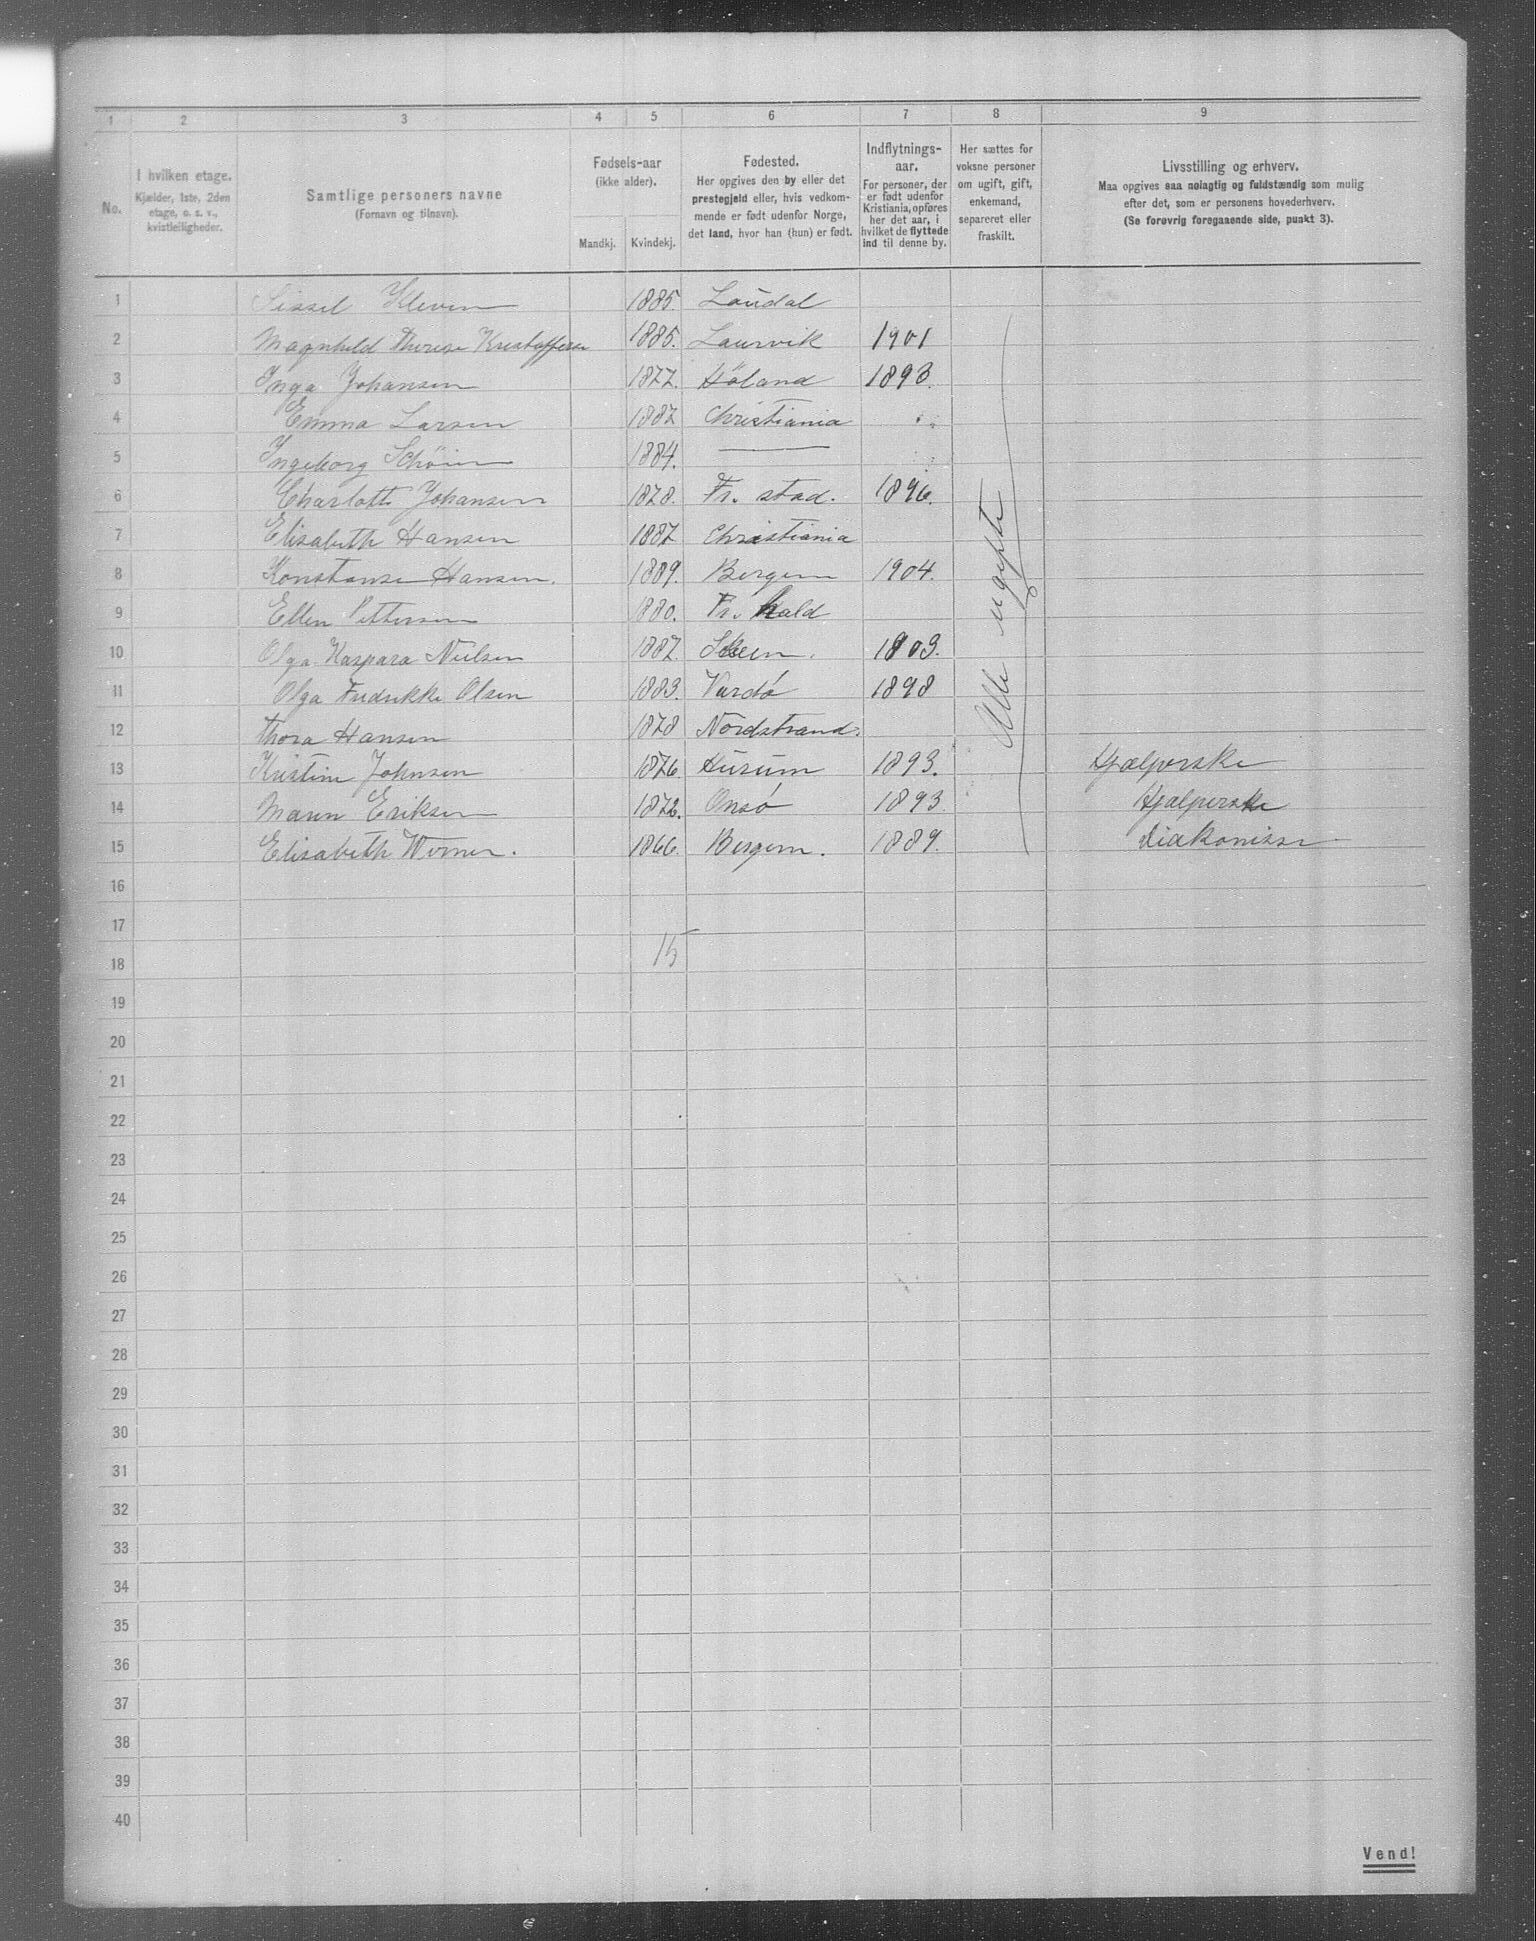 1 2 3 4 5 6 7 8 9
No.
I hvilken etage.
Kjælder, 1ste, 2den
etage, o. s. v.,
kvistleiligheder.
Samtlige personers navne
(Fornavn og tilnavn).
Fødsels-aar
(ikke alder).
Mandkj. Kvindekj.
Fødested.
Her opgives den by eller det
prestegjeld eller, hvis vedkom-
mende er født udenfor Norge,
det land, hvor han (hun) er født.
Indflytnings-
aar.
For personer, der
er født udenfor
Kristiania, opføres
her det aar, i
hvilket de flyttede
ind til denne by.
Her sættes for
voksne personer
om ugift, gift,
enkemand,
separeret eller
fraskilt.
Livsstilling og erhverv.
Maa opgives saa nøiagtig og fuldstændig som mulig
efter det, som er personens hovederhverv.
(Se forøvrig foregaaende side, punkt 3).
1 Sissel Kleven 1885. Laudal
2 Magnhild Therese Kristoffersen 1885. Laurvik 1901
3 Inga Johansen 1877. Høland 1893.
4 Emma Larsen 1887 Christiania
5 Ingeborg Schøien 1884. —
6 Charlotte Johansen 1878. Fr. stad. 1896.
7 Elisabeth Hansen 1887 Christiania
8 Konstanse Hansen. 1889. Bergen 1904.
9 Ellen Pettersen 1880. Fr. hald
10 Olga Kaspara Nielsen 1887. Skien. 1903.
11 Olga Fredrikke Olsen 1883. Vardö 1898
12 Thora Hansen 1878 Nordstrand.
13 Kristine Johnsen 1876. Husum 1893. Hjælperske
14 Maren Eriksen 1872. Onsö 1893 Hjælperske
15 Elisabeth Werner. 1866. Bergen. 1889. Diakonisse
Alle ugifte
16
17
15
18
19
20
21
22
23
24
25
26
27
28
29
30
31
32
33
34
35
36
37
38
39
40
Vend!